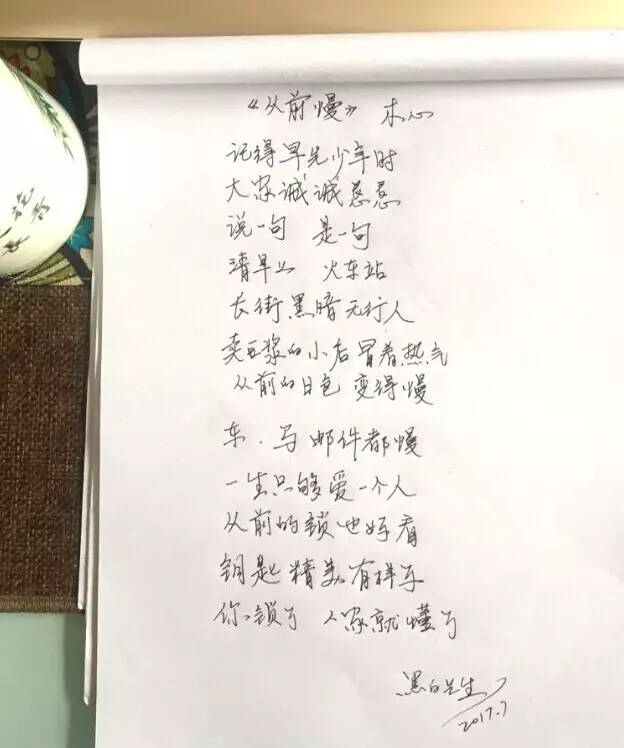 《从前慢》 木心
记得早先少年时
大家诚诚恳恳
说一句 是一句
清早上 火车站
长街黑暗无行人
卖豆浆的小店冒着热气
从前的日色 变得慢
车.马 邮件都慢
一生只够爱一个人
从前的锁也好看
钥匙精美有样子
你锁了 人家就懂了
黑白先生
2017.7